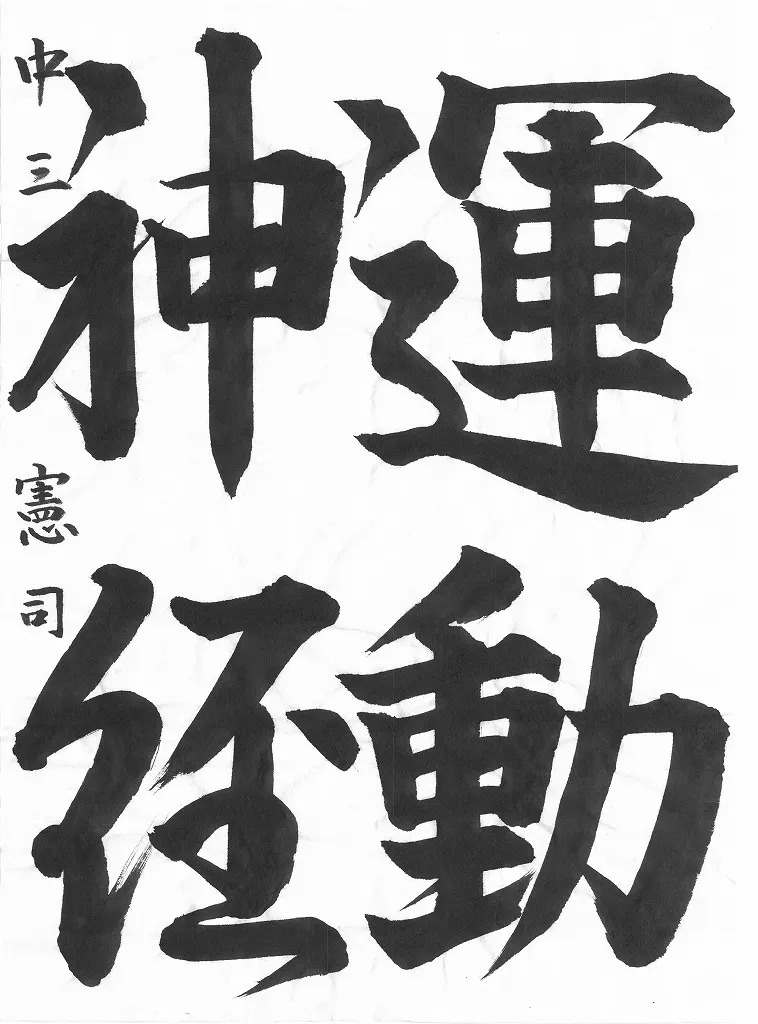 運動
神経
中三 憲司